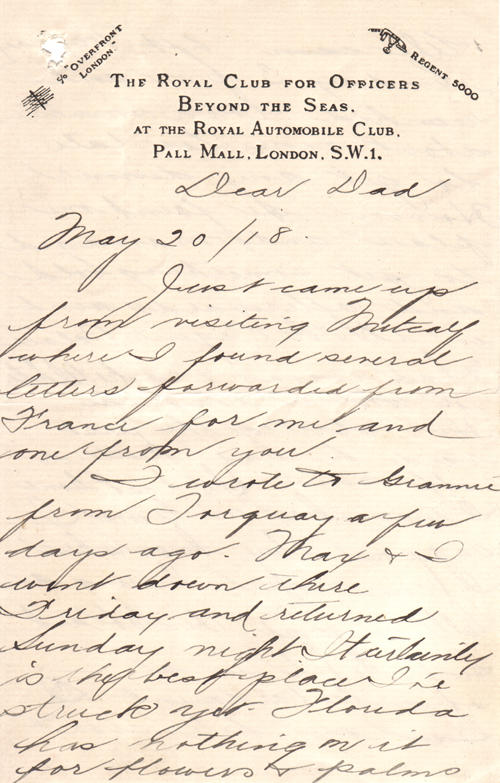 c/o "OVERFRONT
LONDON."
REGENT 5000
THE ROYAL CLUB FOR OFFICERS
BEYOND THE SEAS,
AT THE ROYAL AUTOMOBILE CLUB,
PALL MALL, LONDON, S.W.1.
Dear Dad
May 20/18.
Just came up
from visiting Metcalf
where I found several
letters forwarded from
France for me and
one from you.
I wrote to Grannie
from Torquay a few
days ago. Max & I
went down there
Friday and returned
Sunday night It certainly
is the best place I've
struck yet. Florida
has nothing on it
for flowers & palms